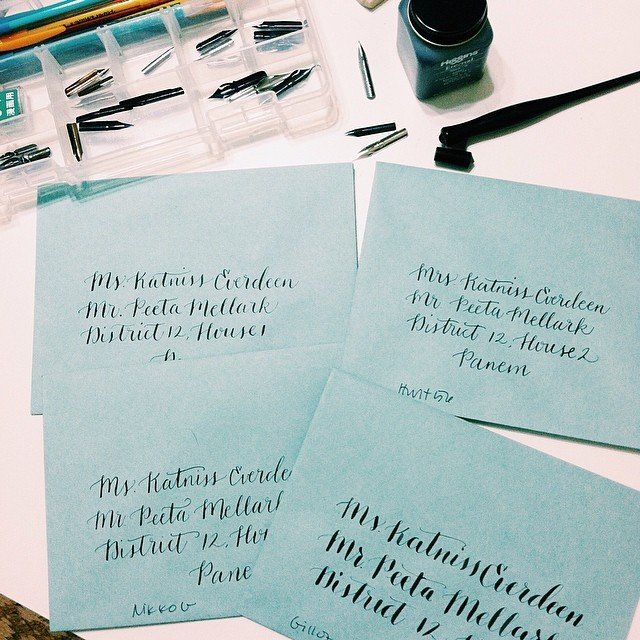 Higgins
Eternal
Ms. Katniss Everdeen
Mr. Peeta Mellark
District 12, House 1
Mrs Katniss Everdeen
Mr Peeta Mellark
District 12, House 2
Panem
Ms. Katniss Everde
Mr. Peeta Mellark
District 12, Hou
Pane
Nikko G
Ms Katniss Everdeen
Mr Peeta Mellark
District 12